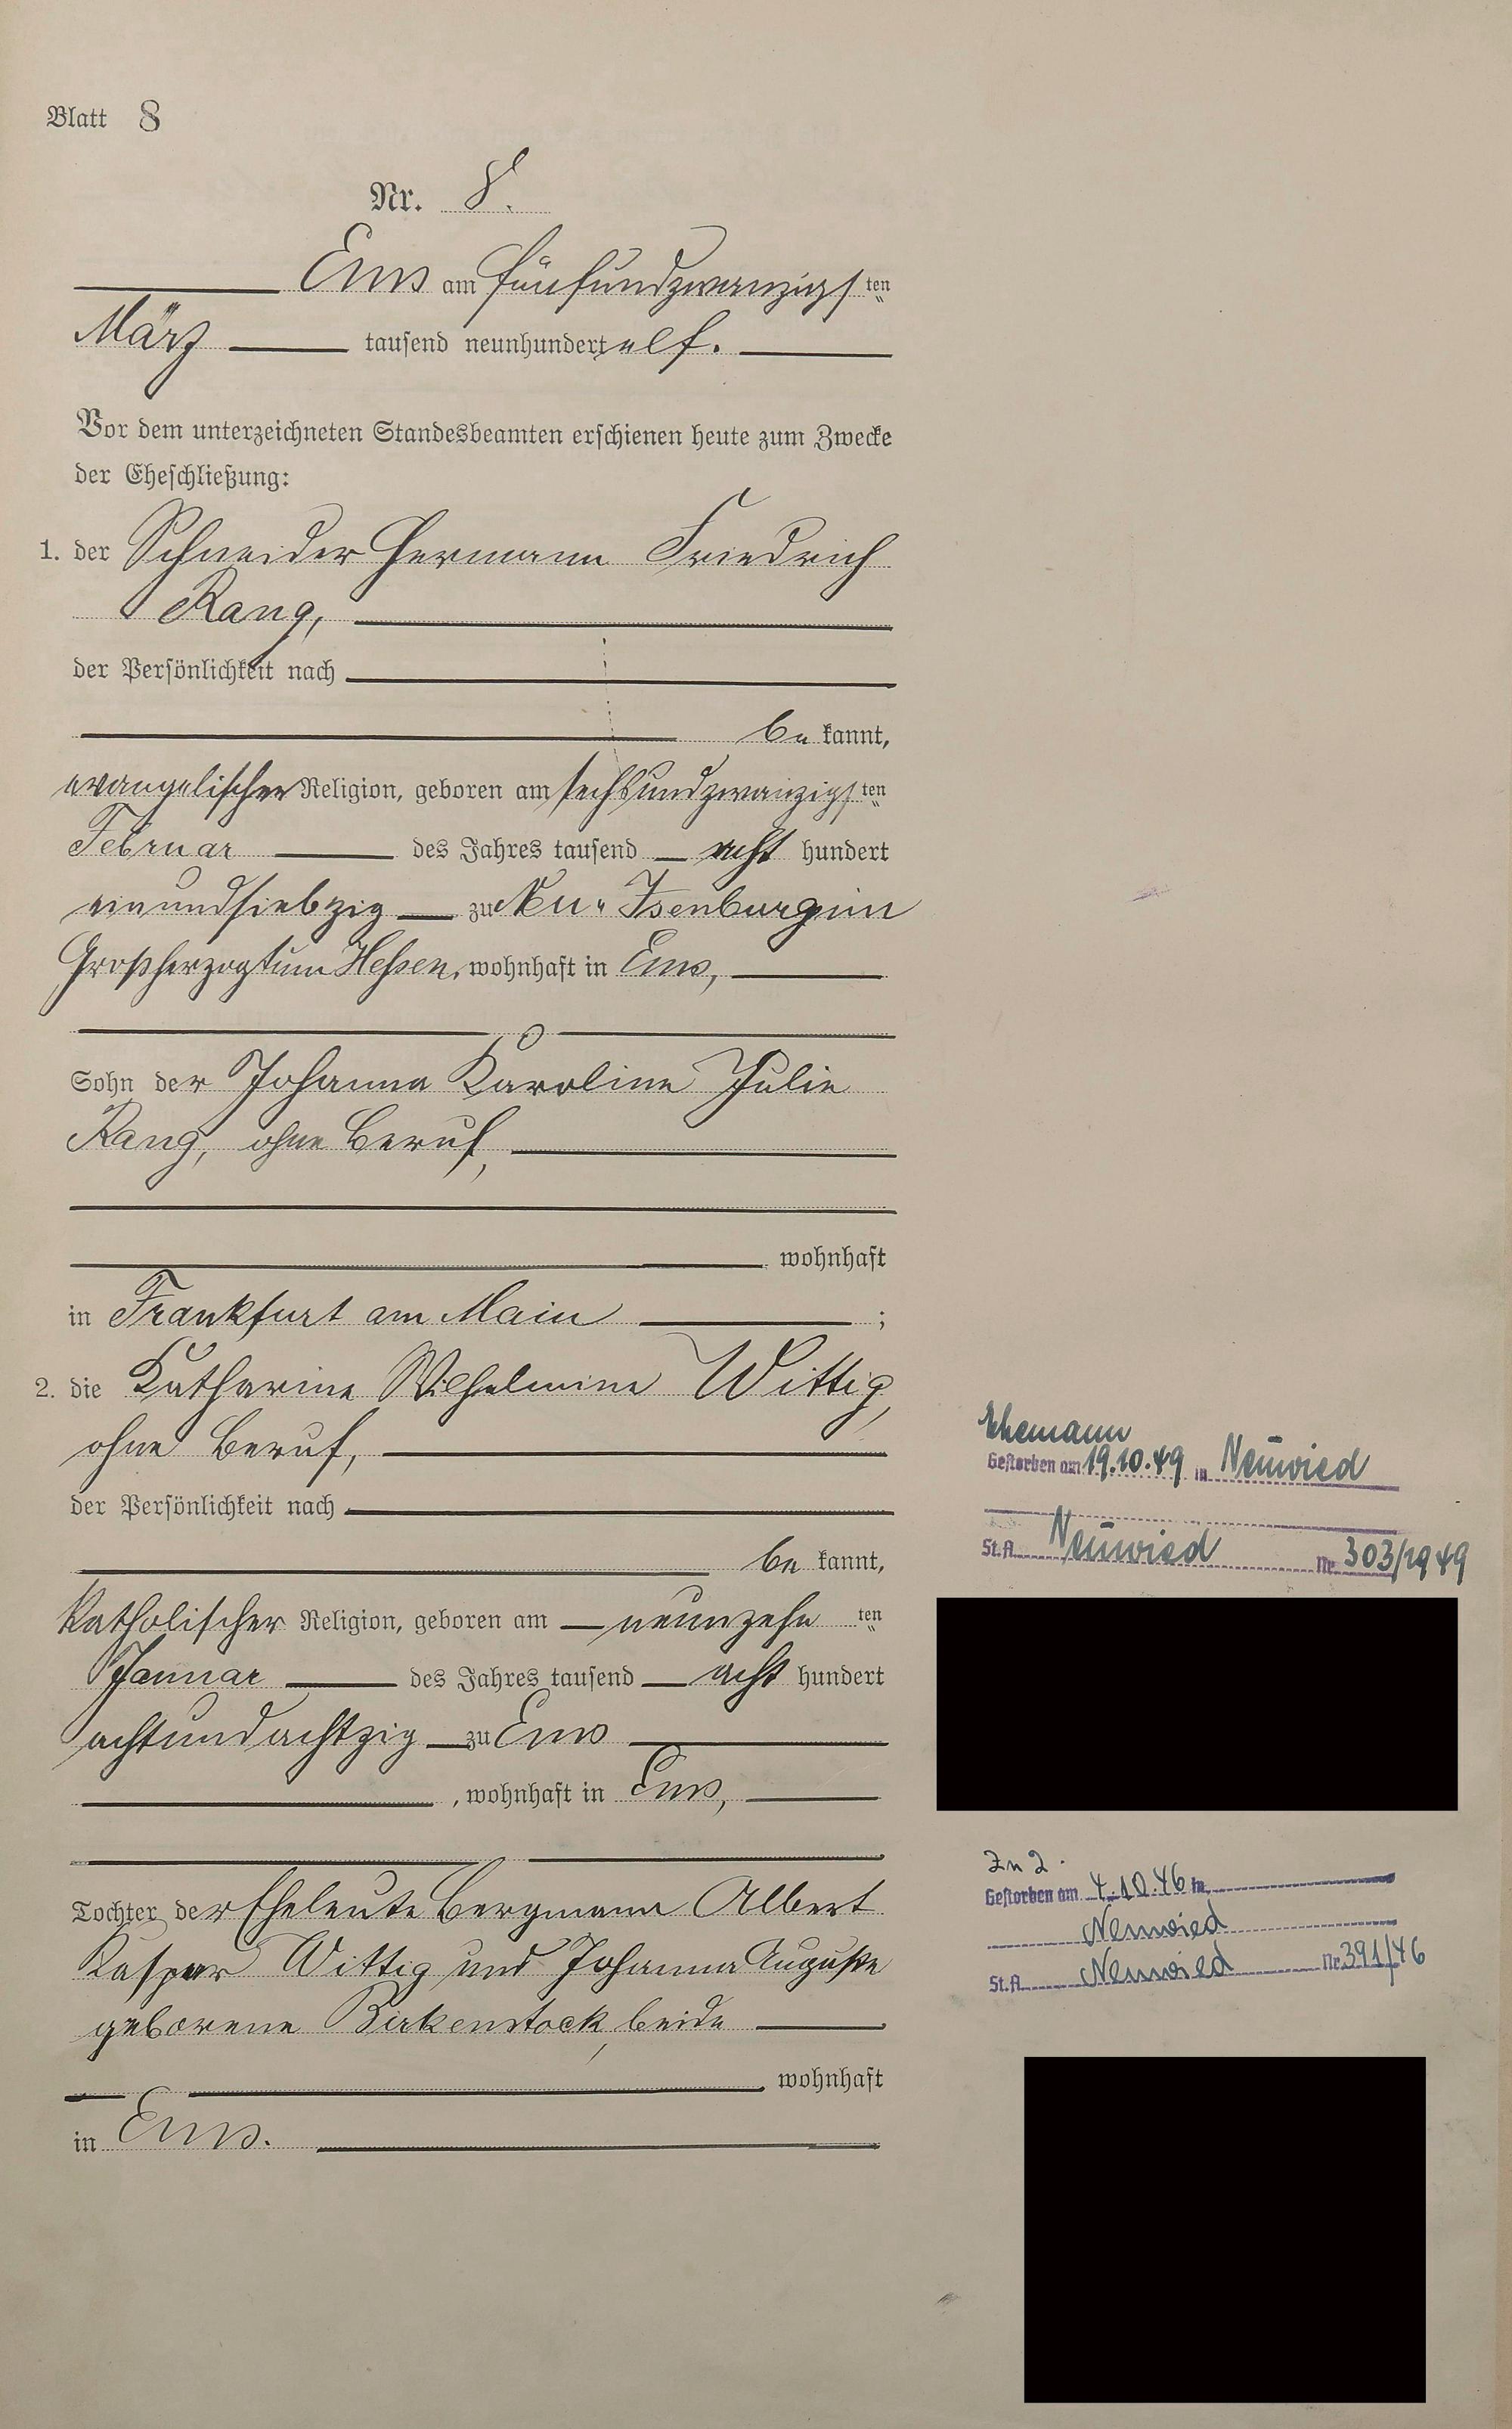 Blatt 8
Nr. 8.
Ems am fünfundzwanzigsten
März tausend neunhundert elf.
Vor dem unterzeichneten Standesbeamten erschienen heute zum Zwecke
der Eheschließung:
1. der Schneider Hermann Friedrich
Rang,
der Persönlichkeit nach
be kannt,
evangelischer Religion, geboren am sechsundzwanzigsten
Februar des Jahres tausend acht hundert
einundsiebzig zu Neu-Isenburg im
Großherzogtum Hessen, wohnhaft in Ems,
Sohn der Johanna Karoline Julie
Rang, ohne Beruf,
wohnhaft
in Frankfurt am Main ;
2. die Katharine Wilhelmine Wittig,
ohne Beruf,
der Persönlichkeit nach
be kannt,
katholischer Religion, geboren am neunzehn ten
Januar des Jahres tausend acht hundert
achtundachtzig zu Ems
, wohnhaft in Ems,
Tochter der Eheleute Bergmann Albert
Kaspar Wittig und Johanna Auguste
geborene Birkenstock, beide
wohnhaft
in Ems.
Ehemann
Gestorben am 19.10.49 in Neuwied
St.A. Neuwied Nr. 303/1949
Zu 2.
Gestorben am 4.10.46 in
Neuwied
St.A. Neuwied Nr. 391/46